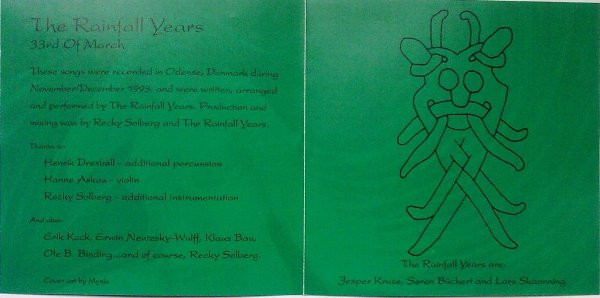 The Rainfall Years
33rd Of March
These songs were recorded in Odense, Denmark during
November/December 1993, and were written, arranged
and performed by The Rainfall Years. Production and
mixing was by Recky Solberg and The Rainfall Years.
Thanks to:
Henrik Drevball - additional percussion
Hanne Askou - violin
Recky Solberg - additional instrumentation
And also:
Erik Kock, Erwin Neutzsky-Wulff, Klaus Bau,
Ole B. Binding ...and of course, Recky Solberg.
Cover art by
The Rainfall Years are:
Jesper Kruse, Søren Bückert and Lars Skamning